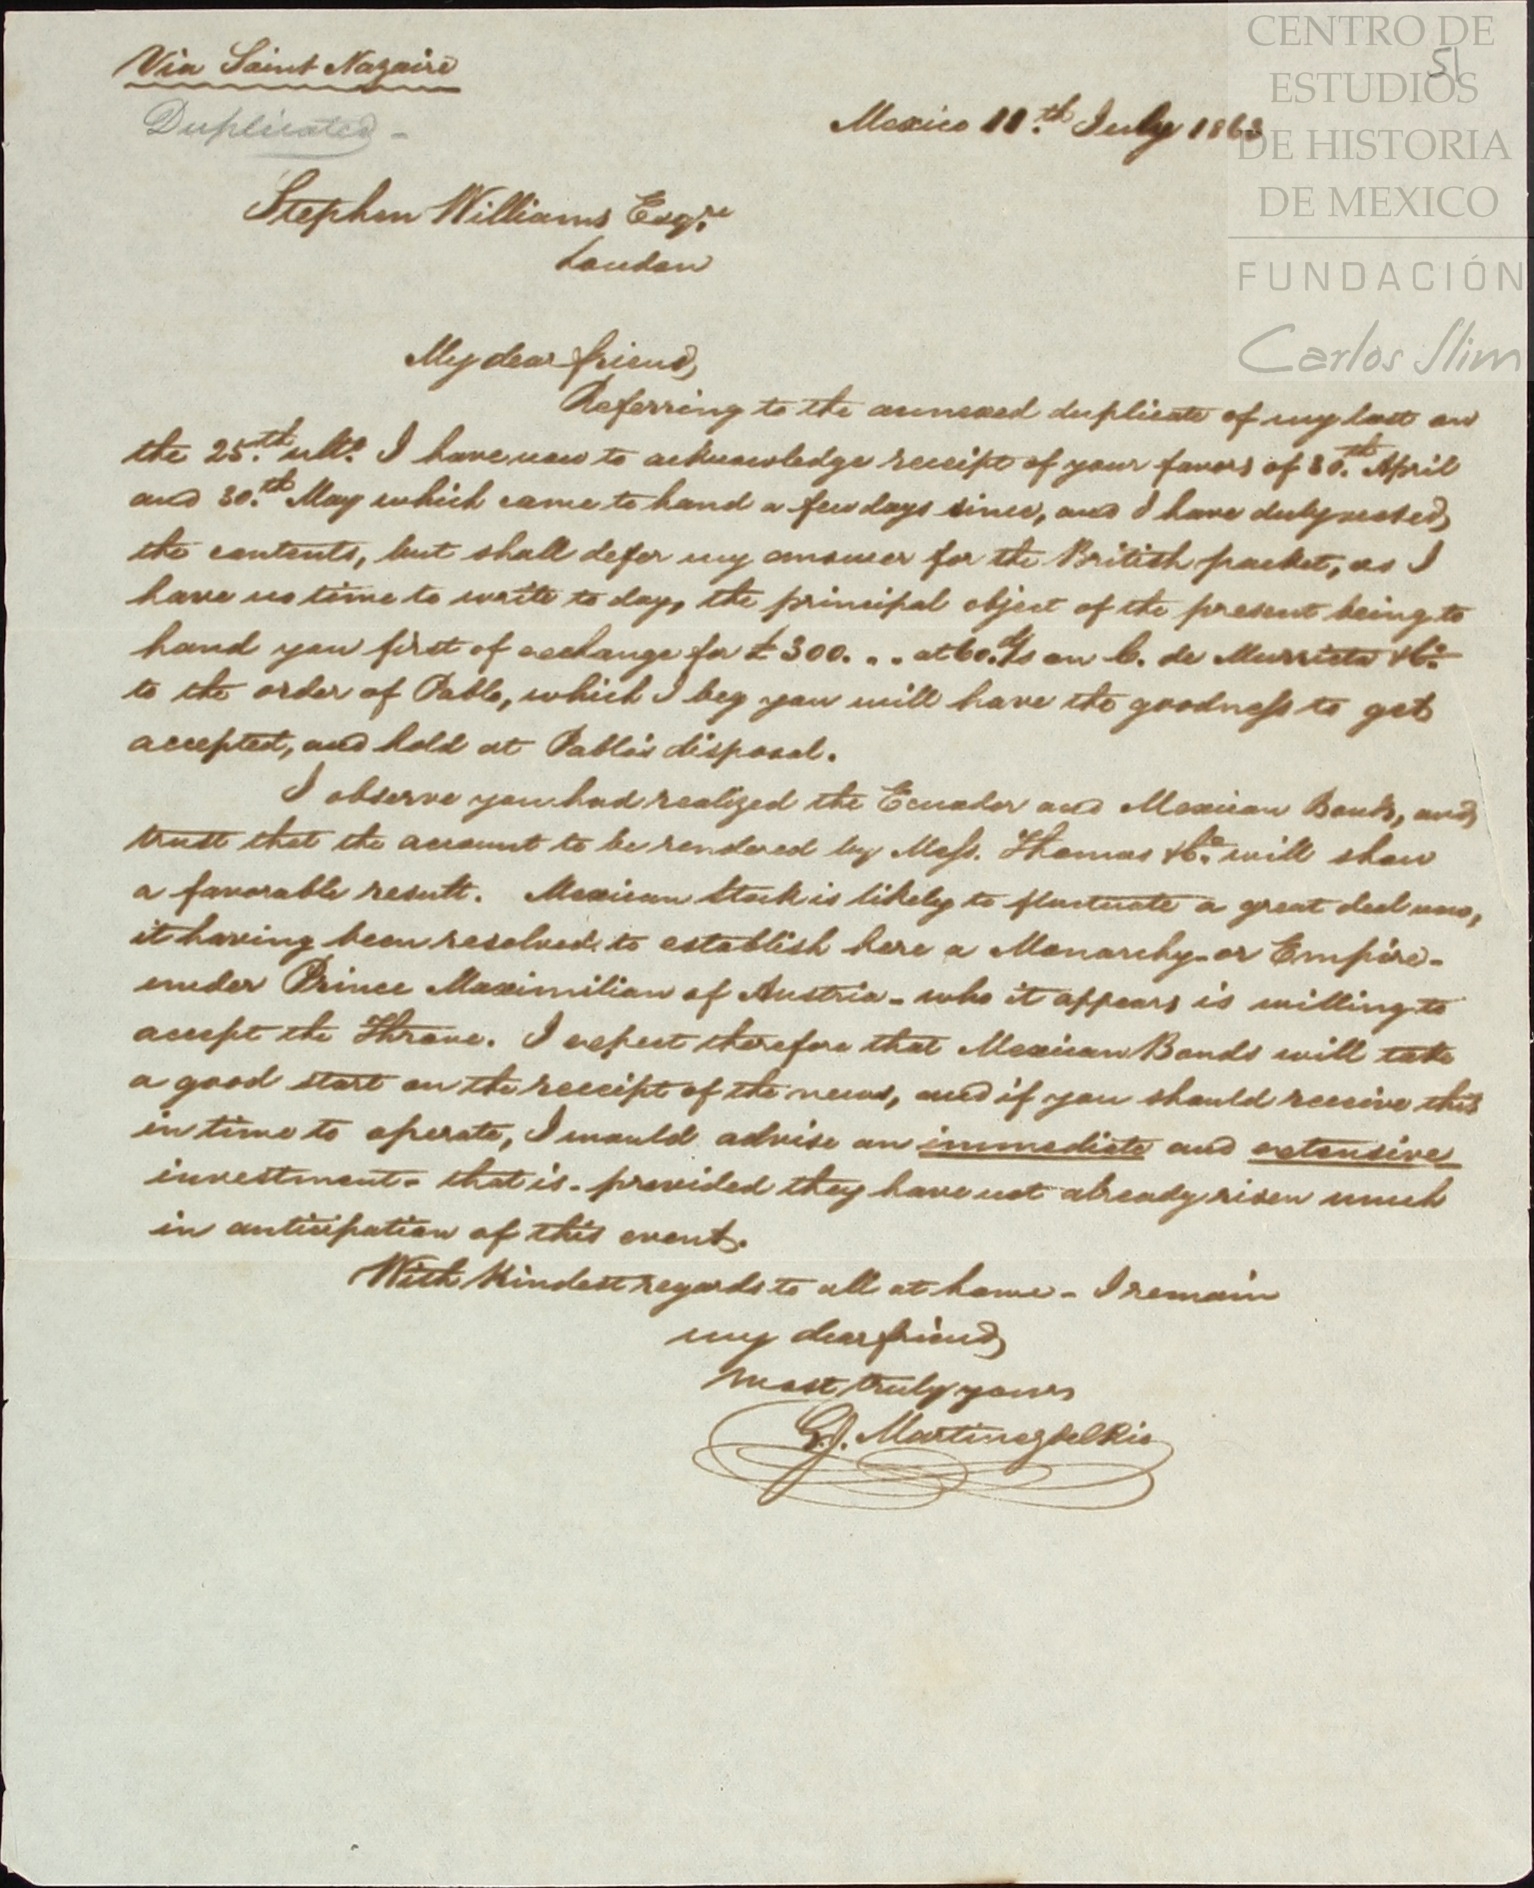 CENTRO DE
ESTUDIOS
DE HISTORIA
DE MEXICO
FUNDACIÓN
Carlos Slim
51
Via Saint Nazaire
Duplicated -
Mexico 11.th July 1863
Stephen Williams Esqre
London
My dear friend,
Referring to the annexed duplicate of my last on
the 25.th ulto. I have now to acknowledge receipt of your favors of 30.th April
and 30.th May which came to hand a few days since, and I have duly noted
the contents, but shall defer my answer for the British packet, as I
have no time to write to day, the principal object of the present being to
hand you first of exchange for £300. . . at 60. d/s on C. de Murrieta & Co.
to the order of Pablo, which I beg you will have the goodness to get
accepted, and hold at Pablo's disposal.
I observe you had realized the Ecuador and Mexican Bonds, and
trust that the account to be rendered by Mess. Thomas & Co. will show
a favorable result. Mexican Stock is likely to fluctuate a great deal now,
it having been resolved to establish here a Monarchy - or Empire -
under Prince Maximilian of Austria - who it appears is willing to
accept the Throne. I expect therefore that Mexican Bonds will take
a good start on the receipt of the news, and if you should receive this
in time to operate, I would advise an immediate and extensive
investment - that is - provided they have not already risen much
in anticipation of this event.
With kindest regards to all at home - I remain
my dear friend,
most truly yours
G. J. Martinez del Rio